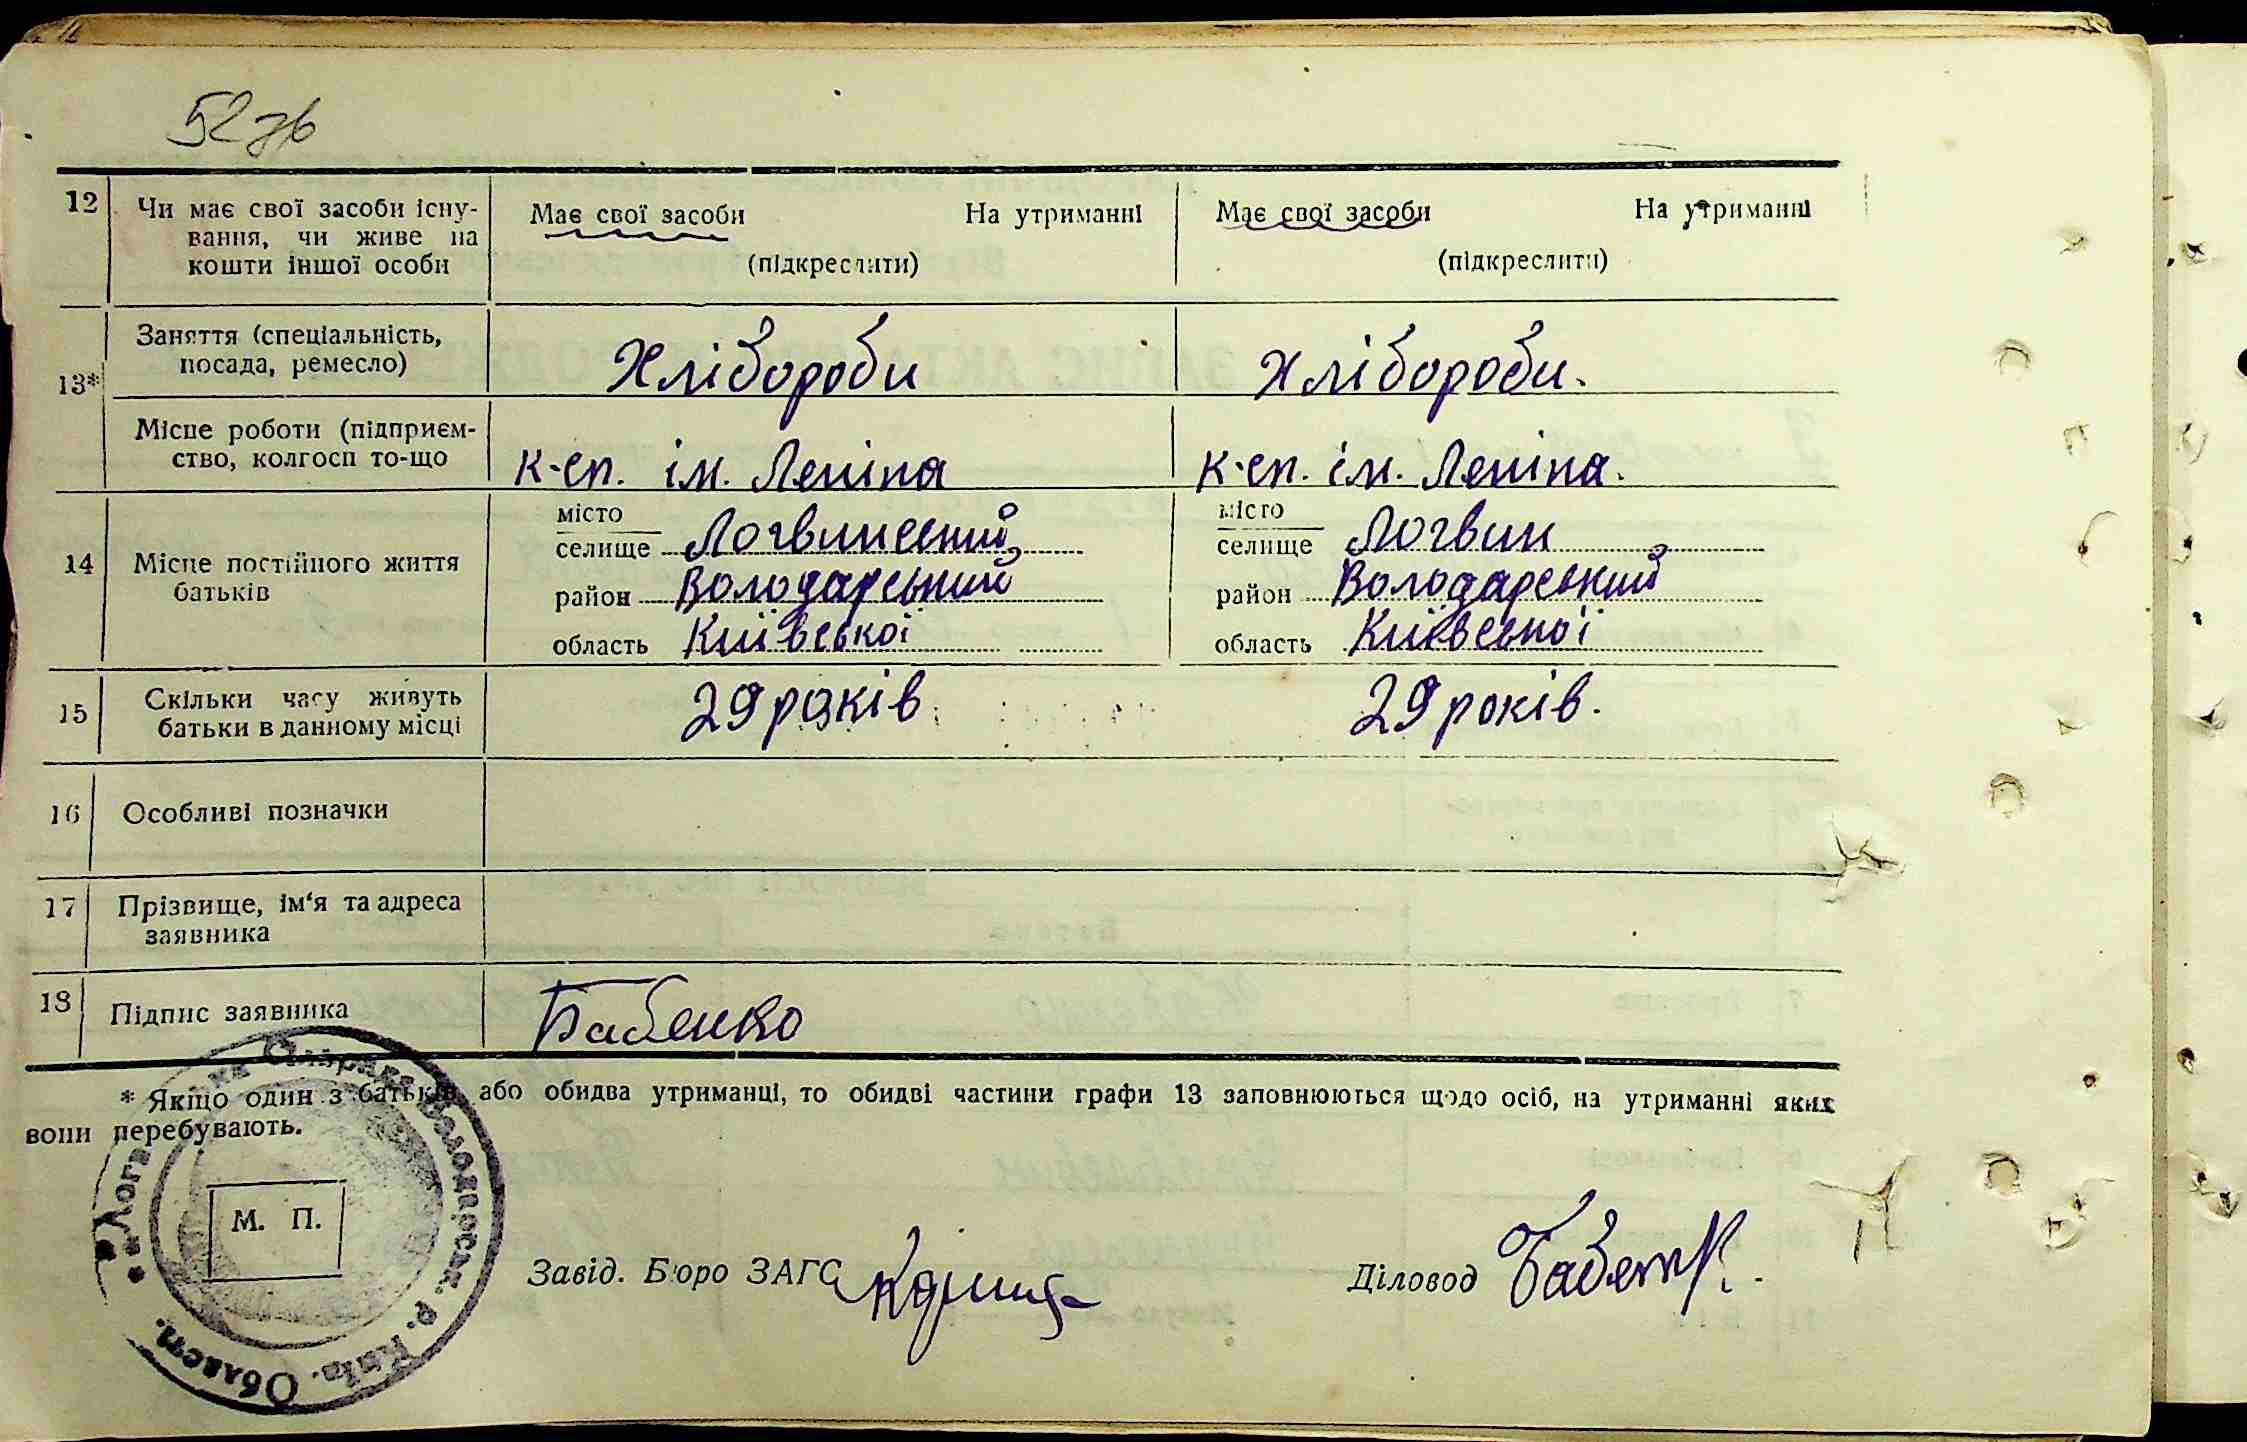 52 зв
12 Чи має свої засоби існу- Має свої засоби На утриманні Має свої засоби На утриманні
вання, чи живе на
кошти іншої особи (підкреслити) (підкреслити)
13* Заняття (спеціальність,
посада, ремесло) Хлібороби Хлібороби.
Місце роботи (підприєм-
ство, колгосп то-що к-сп. ім. Леніна к-сп. ім. Леніна.
14 Місце постійного життя
батьків
місто місто
селище Логвинський селище Логвин
район Володарський район Володарський
область Київської область Київської
15 Скільки часу живуть
батьки в данному місці 29 років. 29 років.
16 Особливі позначки
17 Прізвище, ім'я та адреса
заявника
18 Підпис заявника Бабенко
* Якщо один з батьків або обидва утриманці, то обидві частини графи 13 заповнюються щодо осіб, на утриманні яких
вони перебувають.
М. П.
Завід. Бюро ЗАГС
Діловод
Володарськ. р. Київ. Області.